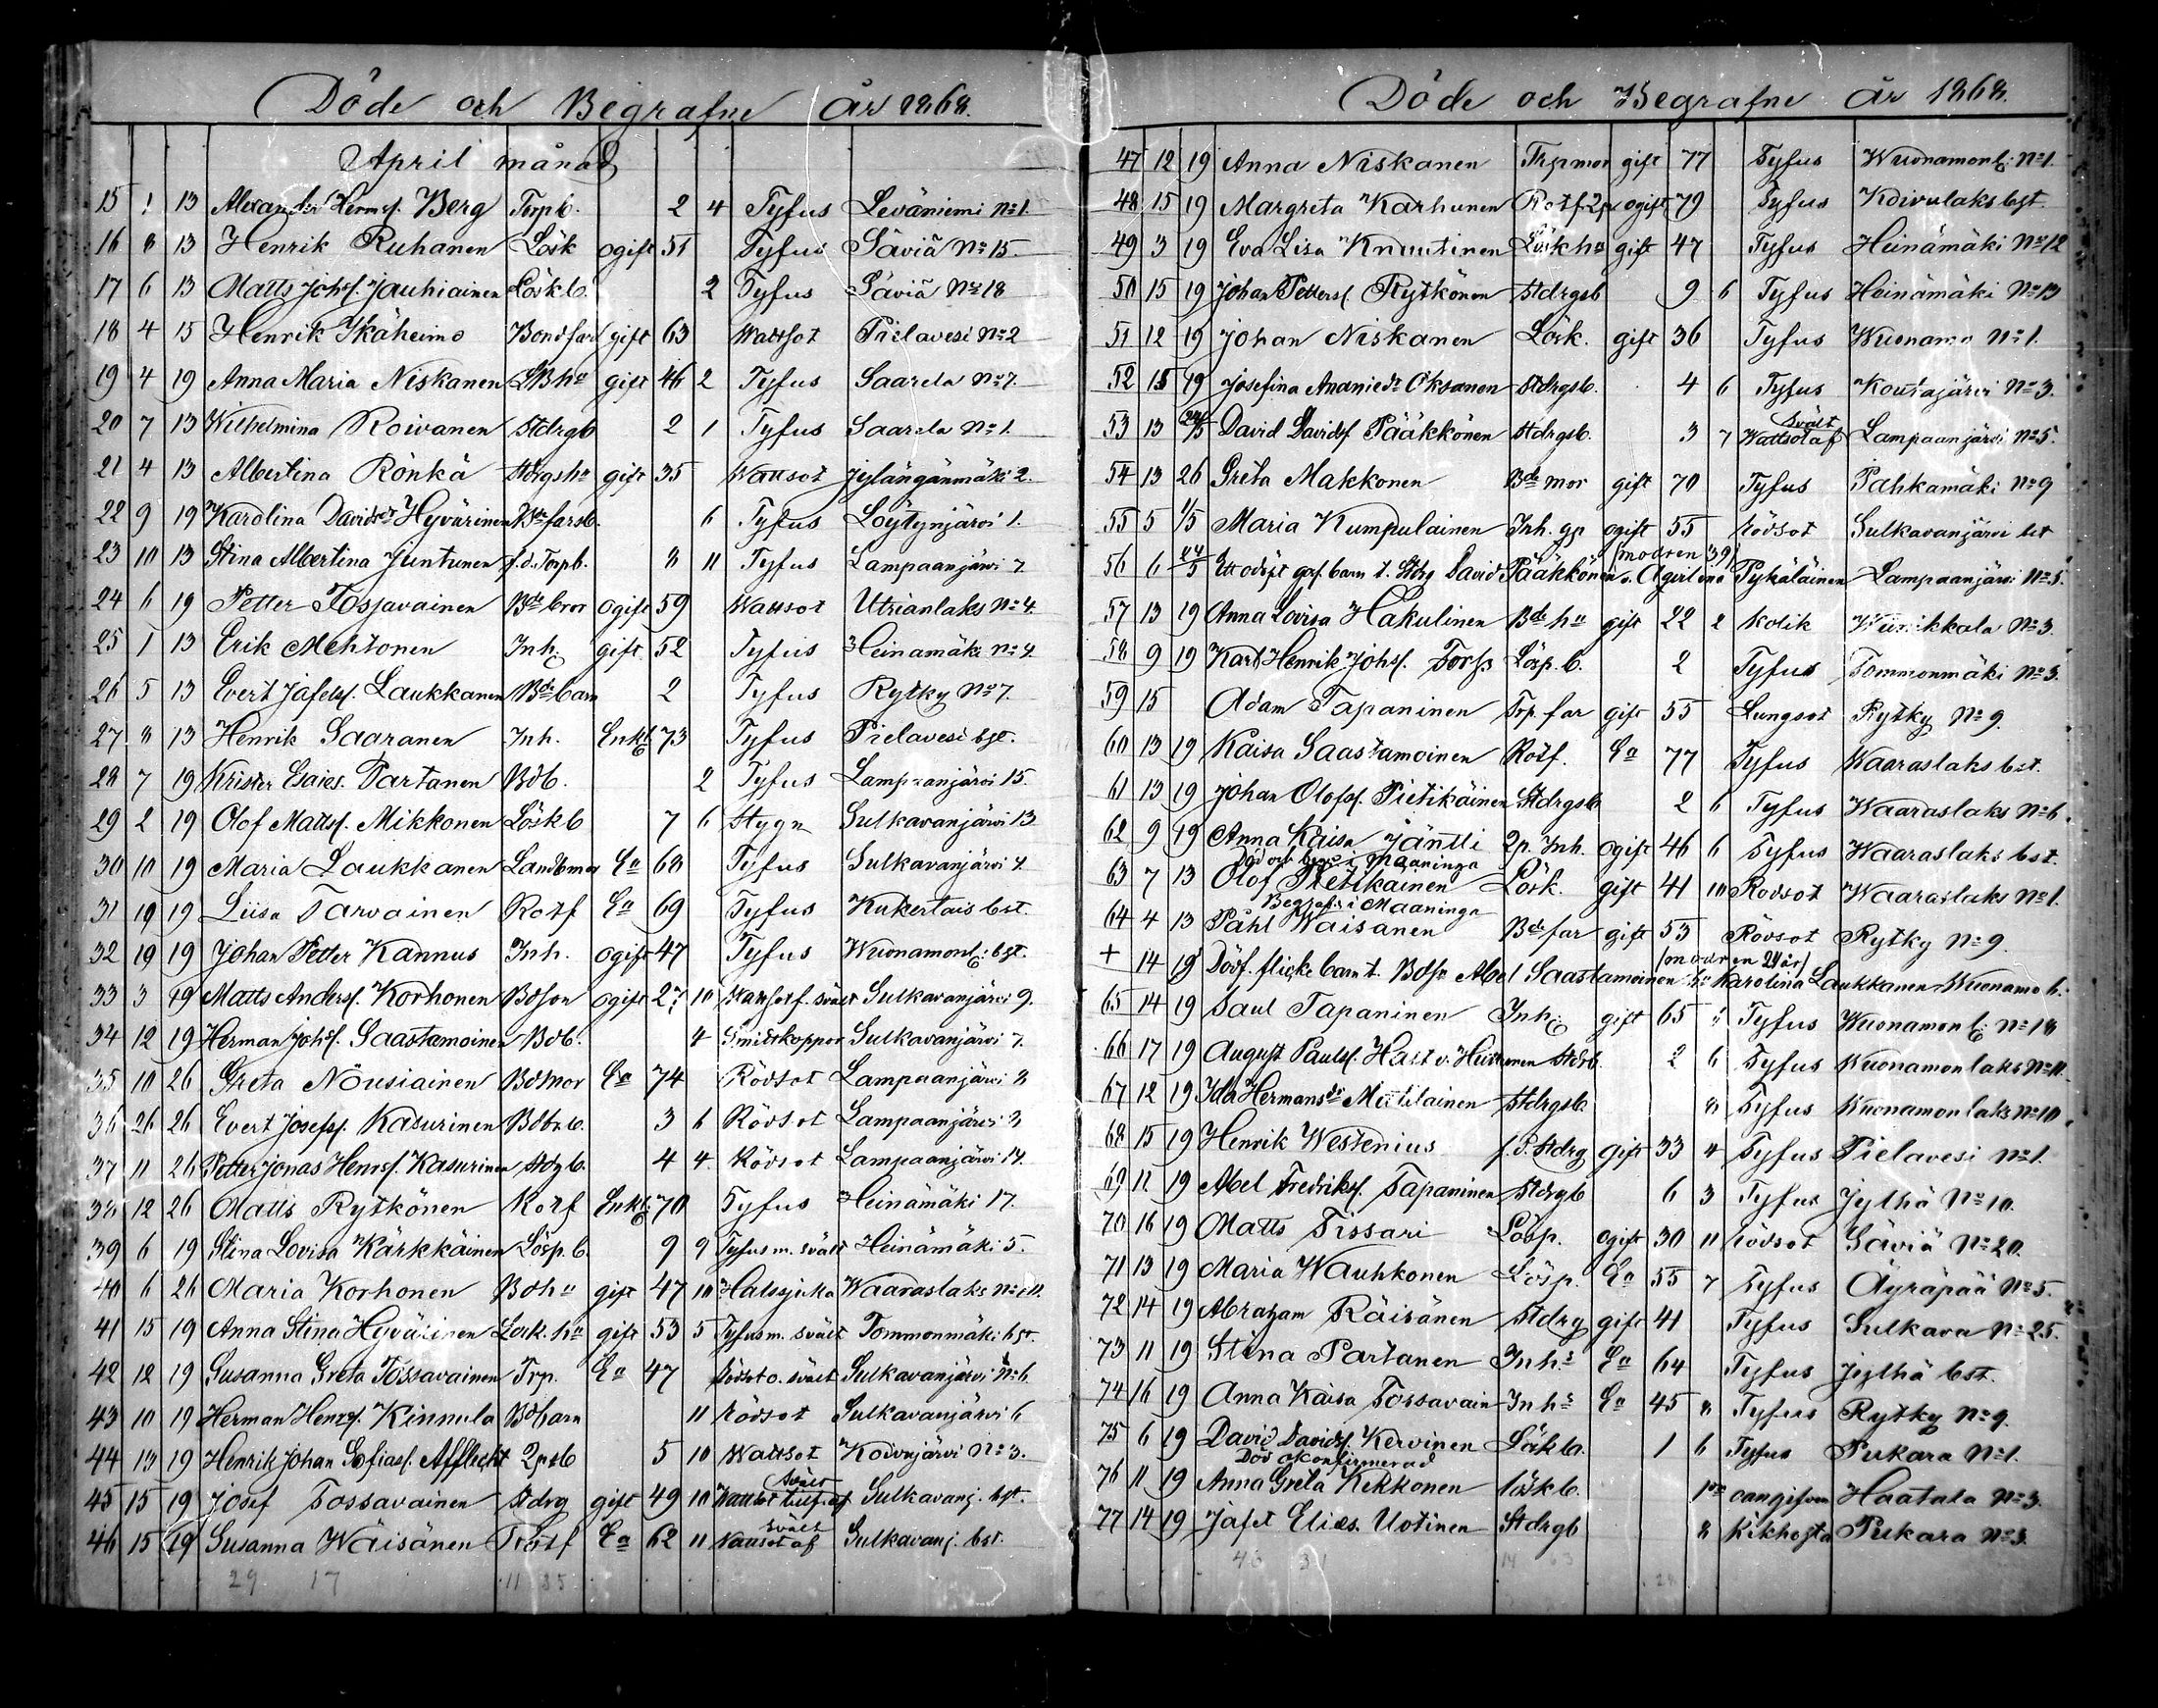 Döde och Begrafne år 1868.
April månad
15 1 13 Alexander Henrs. Berg Torpb. 2 4 Tyfus Leväniemi No 1.
16 8 13 Henrik Ruhanen Lösk ogift 51 Tyfus Säviä No 15.
17 6 13 Matts Johs. Jauhiainen Löskb. 2 Tyfus Säviä No 18
18 4 15 Henrik Ikäheimo Bondfar gift 63 Wattsot Pielavesi No 2
19 4 19 Anna Maria Niskanen gift 46 2 Tyfus Saarela No 7.
20 7 13 Wilhelmina Roivanen Stdrgb 2 1 Tyfus Saarela No 1.
21 4 13 Albertina Rönkä Stdrgshu gift 35 Wattsot Jylängänmäki 2.
22 9 19 Karolina Davidsdr Hyvärinen Bdefarsb. 6 Tyfus Löytynjärvi 1.
23 10 13 Stina Albertina Juntunen f.d. Torpb. 8 11 Tyfus Lampaanjärvi 7.
24 6 19 Petter Tossavainen Bdebror ogift 59 Wattsot Utrianlaks No 4.
25 1 13 Erik Mehtonen Inh. gift 52 Tyfus Heinämäki No 4.
26 5 13 Evert Jafetss. Laukkanen Bdebarn 2 Tyfus Rytky No 7.
27 8 13 Henrik Saaranen Inh. Enkl. 73 Tyfus Pielavesi bst.
28 7 19 Krister Esaies. Partanen Bdb. 2 Tyfus Lampaanjärvi 15.
29 2 19 Olof Mattss. Mikkonen Löskb 7 6 Stygn Sulkavanjärvi 13
30 10 19 Maria Laukkanen Landbmor Ea 68 Tyfus Sulkavanjärvi 4.
31 19 19 Liisa Tarvainen Rotf Ea 69 Tyfus Kukertais bst.
32 19 19 Johan Petter Kannus Inh. ogift 47 Tyfus Wuonamonl: bst.
33 3 19 Matts Anderss. Korhonen Bdson ogift 27 10 Wattsot f. svält Sulkavanjärvi 9.
34 12 19 Herman Johs. Saastamoinen Bdb. 4 Smittkoppor Sulkavanjärvi 7.
35 10 26 Greta Nousiainen Bdmor Ea 74 Rödsot Lampaanjärvi 8
36 26 26 Evert Josefss. Kasurinen 3 6 Rödsot Lampaanjärvi 3
37 11 26 Petter Jonas Henrs. Kasurinen Stdgb. 4 4 Rödsot Lampaanjärvi 14.
38 12 26 Matts Rytkönen Rotf Enkl: 70 Tyfus Heinämäki 17.
39 6 19 Stina Lovisa Kärkkäinen Lösp. b. 9 9 Tyfus m. svält Heinämäki 5.
40 6 26 Maria Korhonen Bdhu gift 47 10 Halssjuka Waaraslaks No 11.
41 15 19 Anna Stina Hyvärinen Lösk. hu gift 53 5 Tyfus m. svält Tommonmäki bst.
42 12 19 Susanna Greta Tossavainen Trp. Ea 47 Rödsot o. svält Sulkavanjärvi No 6
43 10 19 Herman Henrs. Kinnula Bdbarn 11 Rödsot Sulkavanjärvi 6
44 13 19 Henrik Johan Sofiass. Afflecht 2psb 5 10 Wattsot Koivujärvi No 3.
45 15 19 Josef Tossavainen Stdrg gift 49 10 svält Sulkavanj. bst.
46 15 19 Susanna Wäisänen Rotf Ea 62 11 Wattsot af svält Sulkavanj. bst.
29 17 11 35
Döde och Begrafne år 1868.
47 12 19 Anna Niskanen Trpmor gift 77 Tyfus Wuonamonl: No 1.
48 15 19 Margreta Karhunen Rotf. 2p ogift 79 Tyfus Koivulaks bst.
49 3 19 Eva Lisa Knuutinen Löskhu gift 47 Tyfus Heinämäki No 12
50 15 19 Johan Petterss. Rytkönen Stdrgsb 9 6 Tyfus Heinämäki No 13
51 12 19 Johan Niskanen Lösk. gift 36 Tyfus Wuonamo No 1.
52 15 19 Josefina Ananiedr Oksanen Stdrgsb. 4 6 Tyfus Koutajärvi No 3.
53 13 24/5 David Davids. Pääkkönen Stdrgsb. 3 7 Wattsot af svält Lampaanjärvi No 5.
54 13 26 Greta Makkonen Bdemor gift 70 Tyfus Pahkamäki No 9
55 5 1/5 Maria Kumpulainen Inh. gp ogift 55 Rödsot Sulkavanjärvi bst
(modren 39)
56 6 24/5 Ett odöpt gos. barn t. Stdrg David Pääkkönen o. Agirlina Pyhäläinen Lampaanjärvi No 5.
57 13 19 Anna Lovisa Hakulinen Bdehu gift 22 2 Kolik No 3.
58 9 19 Karl Henrik Johs. Torss Lösp. b. 2 Tyfus Tommonmäki No 3.
59 15 Adam Tapaninen Trp. far gift 55 Lungsot Rytky No 9.
60 13 19 Kaisa Saastamoinen Rotf. Ea 77 Tyfus Waaraslaks bst.
61 13 19 Johan Olofss. Pietikäinen Stdrgsb 2 6 Tyfus Waaraslaks No 6.
62 9 19 Anna Kaisa Jäntti 2p. Inh. ogift 46 6 Tyfus Waaraslaks bst.
Död och begr. i Maaninga
63 7 13 Olof Pietikäinen Lösk. gift 41 10 Rödsot Waaraslaks No 1.
Begrafs i Maaninga
64 4 13 Påhl Waisanen Bdefar gift 53 Rödsot Rytky No 9.
(modren 24 år)
+ 14 19 Dödf. flicke barn t. Bdsn Abel Saastamoinen hu Karolina Laukkanen Wuonamo
65 14 19 Saul Tapaninen Inh: gift 65 Tyfus Wuonamonl: No 18
66 17 19 August Paulss. Hast v. Stdrb. 2 6 Tyfus Wuonamonlaks No 11.
67 12 19 Ida Hermansdr Matilainen Stdrgsb. 8 Tyfus Wuonamonlaks No 10
68 15 19 Henrik Westenius f.d. Stdrg gift 33 4 Tyfus Pielavesi No 1.
69 11 19 Abel Fredrikss. Tapaninen Stdrgb 6 3 Tyfus Jylhä No 10.
70 16 19 Matts Tissari Lösp. ogift 30 11 Rödsot Säviä No 20.
71 13 19 Maria Wauhkonen Lösp. Ea 55 7 Tyfus Äyräpää No 5.
72 14 19 Abraham Räisänen Stdrg gift 41 Tyfus Sulkava No 25.
73 11 19 Stina Partanen Inh: Ea 64 Tyfus Jylhä bst.
74 16 19 Anna Kaisa Tossavain Inh: Ea 45 8 Tyfus Rytky No 9.
75 6 19 David Davids. Kervinen Löskb. 1 6 Tyfus Pukara No 1.
Död okonfirmerad
76 11 19 Anna Greta Kekkonen Löskb. oangifven Haatala No 3.
77 14 19 Jafet Elies. Uotinen Stdrgb 8 Kikhosta Pukara No 3.
46 31 14 63